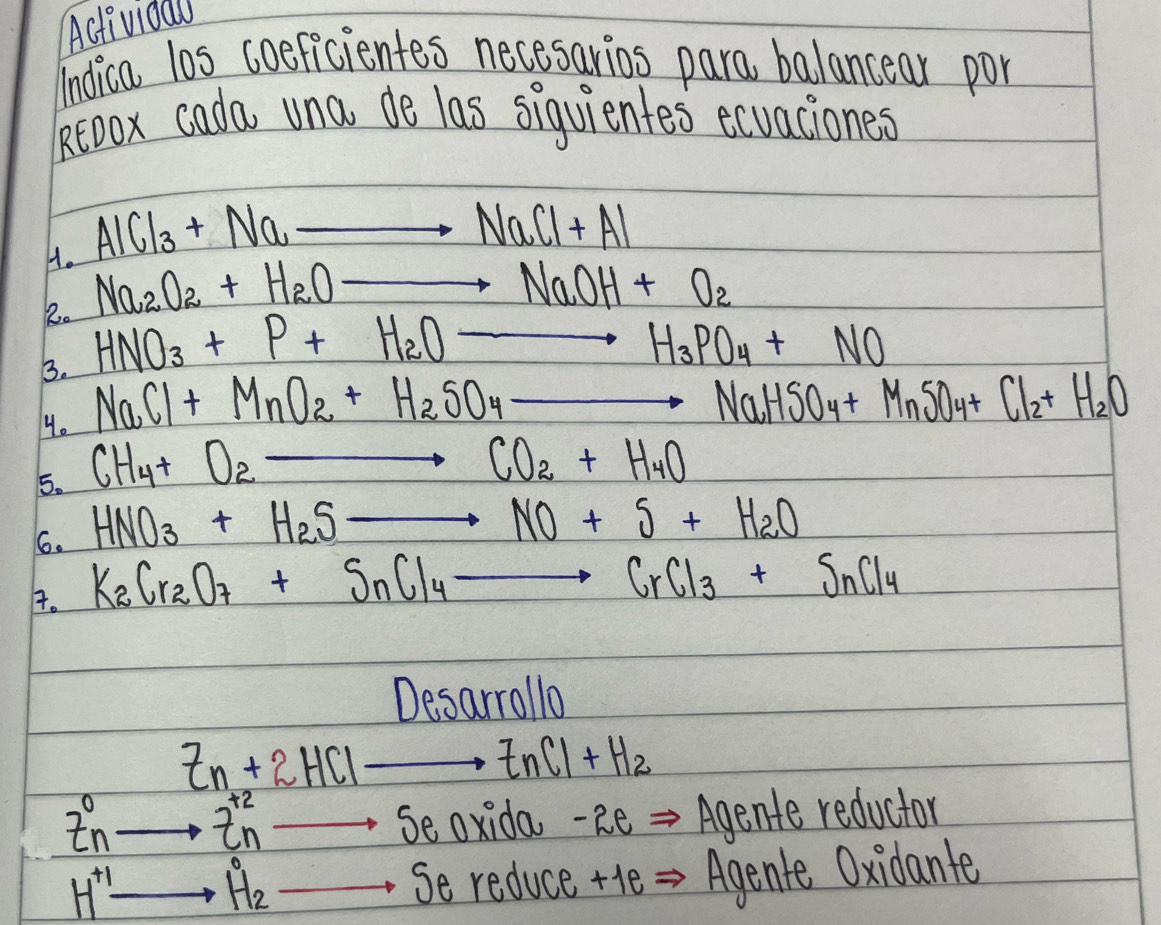 Actividad
Indica los coeficientes necesarios para balancear por
REDOX cada una de las siguientes ecuaciones
1. AlCl₃ + Na → NaCl + Al
2. Na₂O₂ + H₂O → NaOH + O₂
3. HNO₃ + P + H₂O → H₃PO₄ + NO
4. NaCl + MnO₂ + H₂SO₄ → NaHSO₄ + MnSO₄ + Cl₂ + H₂O
5. CH₄ + O₂ → CO₂ + H₄O
6. HNO₃ + H₂S → NO + S + H₂O
7. K₂Cr₂O₇ + SnCl₄ → CrCl₃ + SnCl₄
Desarrollo
Zn + 2HCl → ZnCl + H₂
Zn⁰ → Zn⁺² → Se oxida -2e ⇒ Agente reductor
H⁺¹ → H₂⁰ → Se reduce +1e ⇒ Agente Oxidante